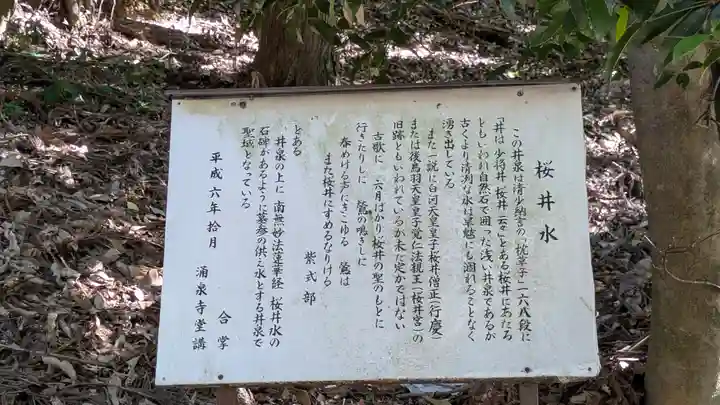 桜井水
この井泉は清少納言の「枕草子」一六八段に
「井は 少将井 桜井 云々」とある桜井にあたる
ともいわれ自然石で囲った浅い井泉であるが
古くより清冽な水は旱魃にも涸れることなく
湧き出ている
また一説に白河天皇皇子桜井僧正(行慶)
または後鳥羽天皇皇子覚仁法親王(桜井宮)の
旧跡ともいわれているが未だ定かではない
古歌に 六月ばかり桜井の聖のもとに
行きたりしに 鶯の鳴きしに
春めける声にきこゆる 鶯は
また桜井にすめるなりける
紫式部
とある
井泉の上に 南無妙法蓮華経 桜井水の
石碑があるように墓参の供え水とする井泉で
聖域となっている
平成六年拾月
合掌
涌泉寺堂講